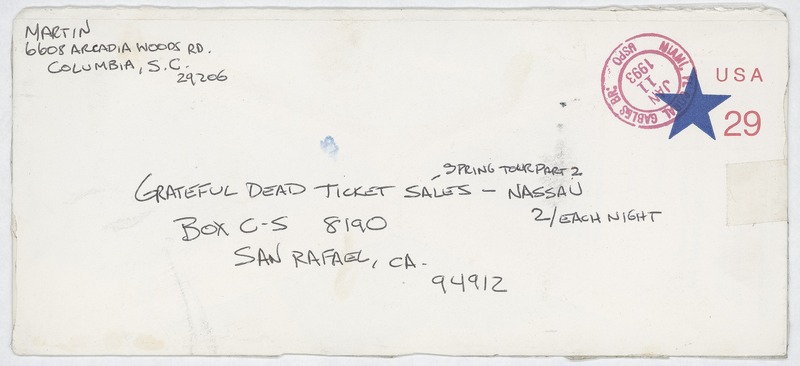 MARTIN
6608 ARCADIA WOODS RD.
COLUMBIA, S.C.
29206
MIAMI, FL CORAL GABLES BR.
USPO
JAN
11
1993
USA
29
SPRING TOUR PART 2
GRATEFUL DEAD TICKET SALES - NASSAU
2/EACH NIGHT
BOX C-S 8190
SAN RAFAEL, CA.
94912